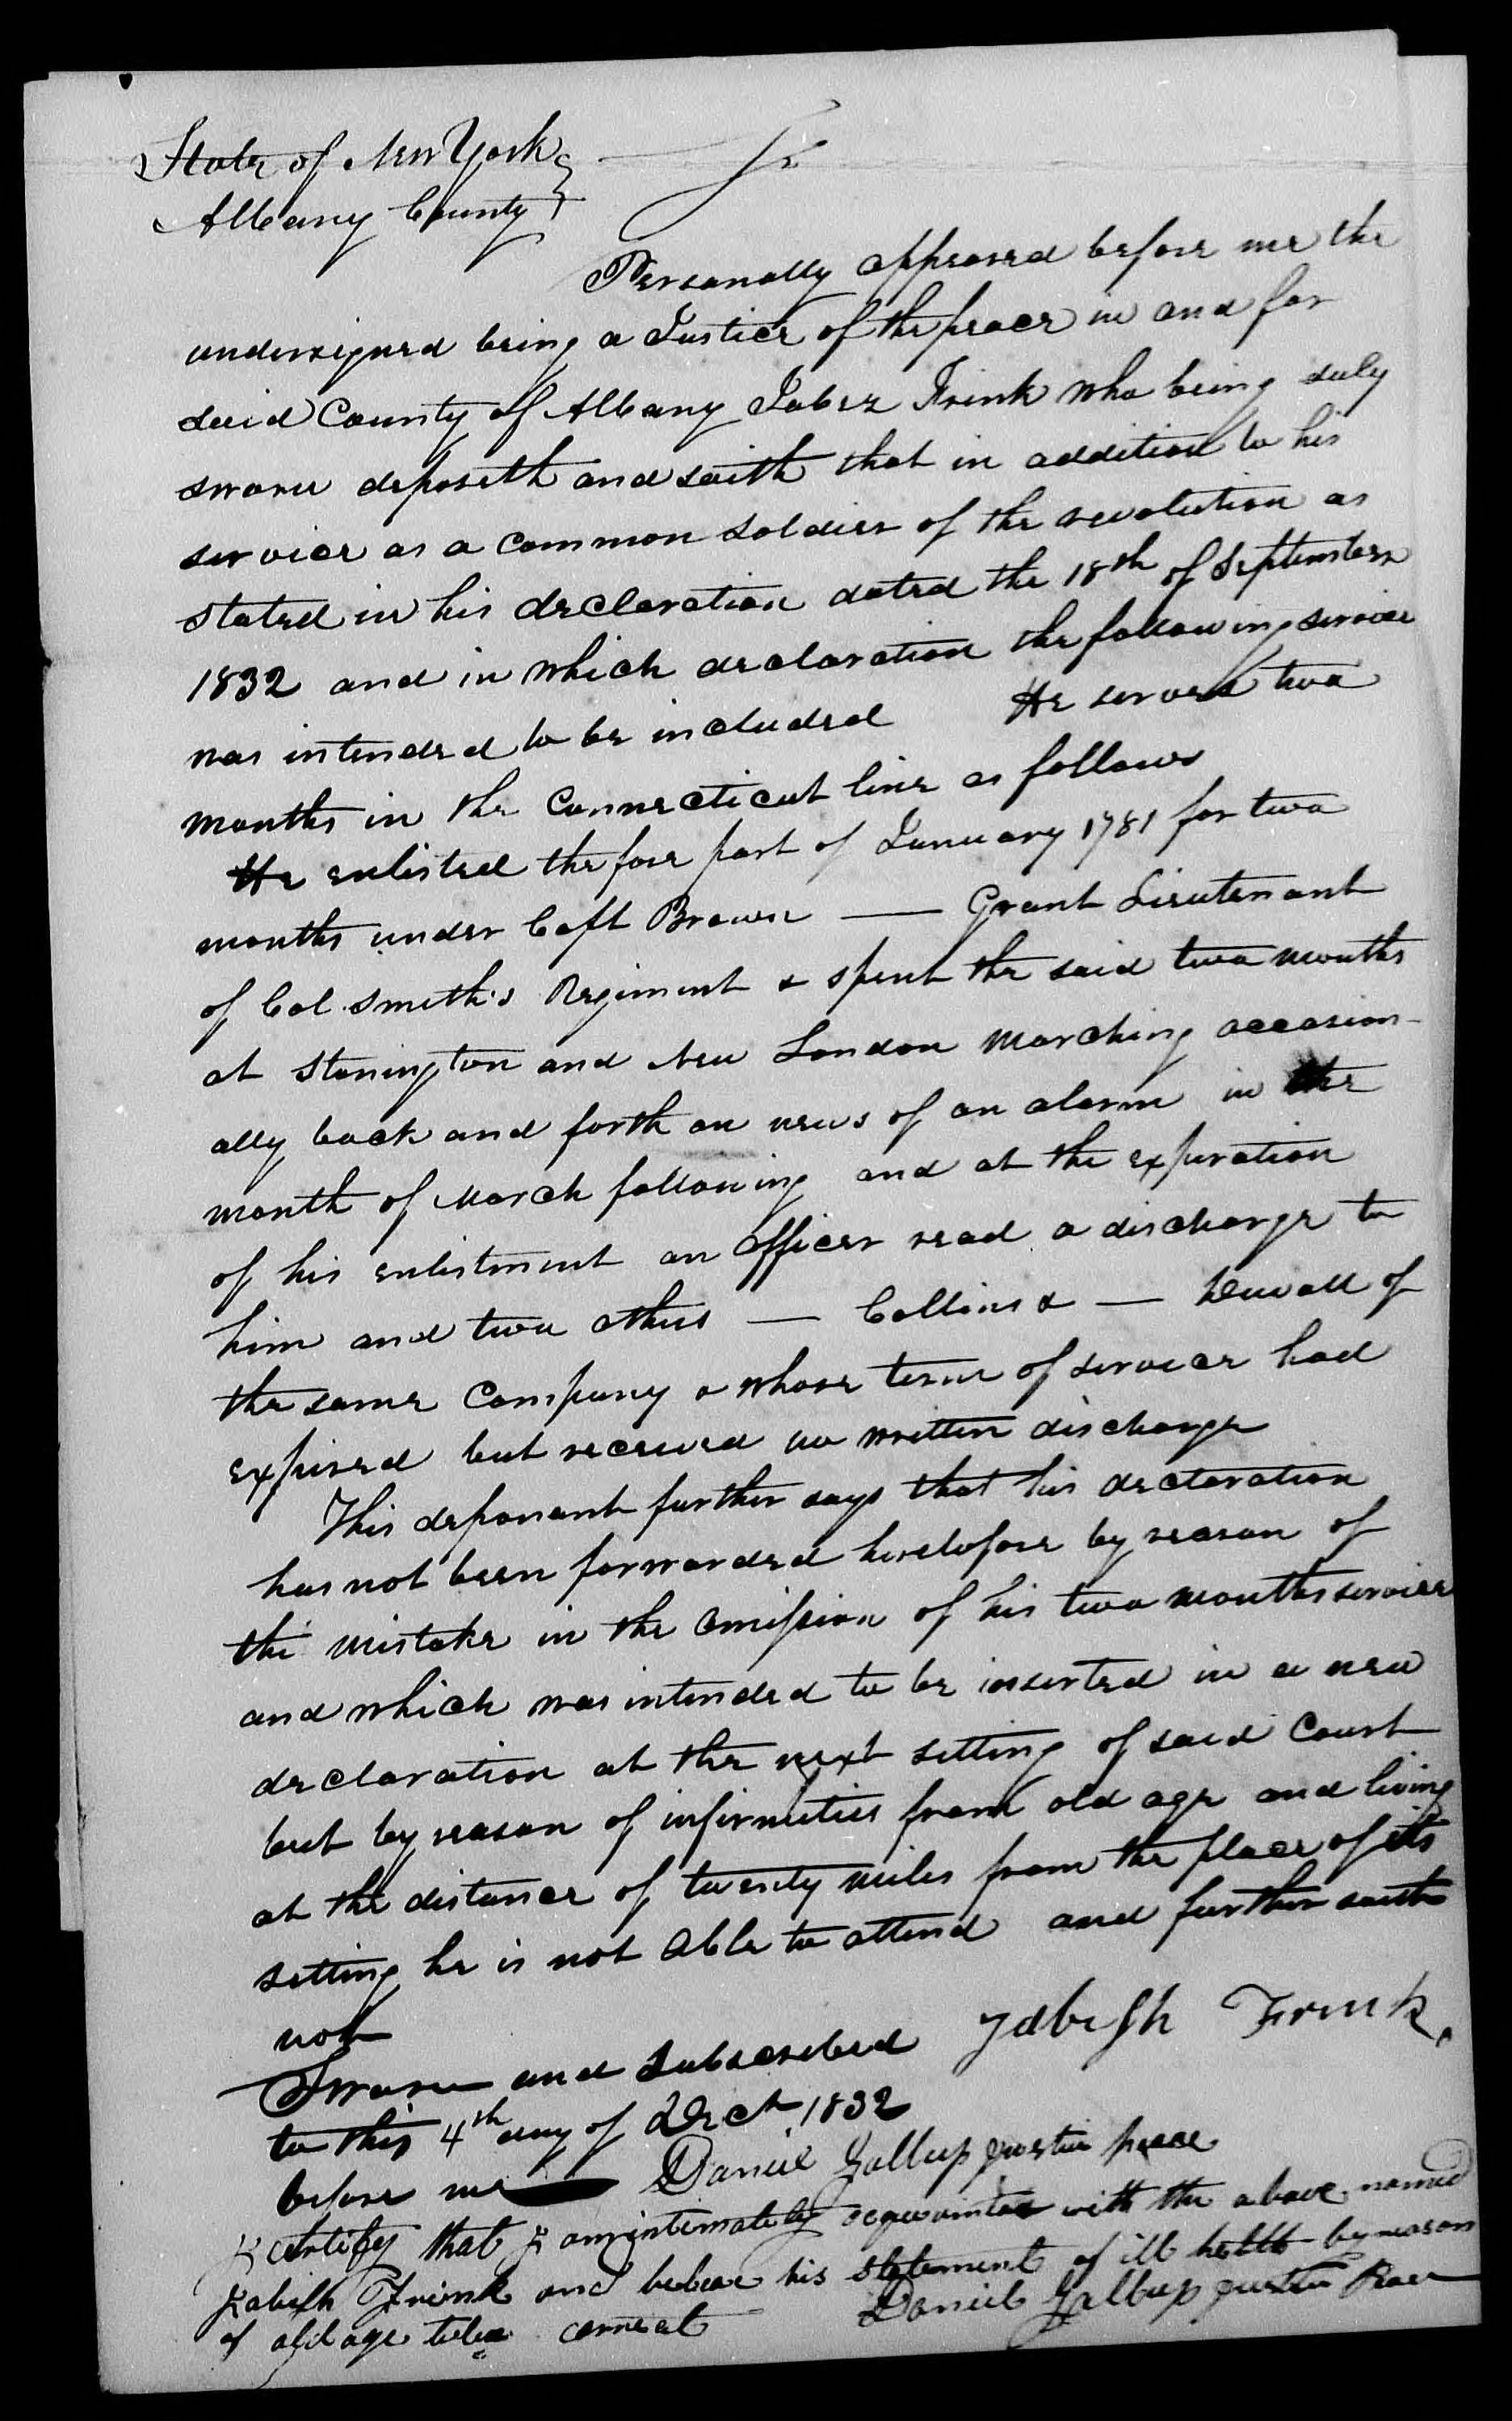 State of New York } ss
Albany County }
Personally appeared before me the
undersigned being a Justice of the peace in and for
said County of Albany Jabez Frink who being duly
sworn deposeth and saith that in addition to his
service as a common soldier of the revolution as
stated in his declaration dated the 18th of September
1832 and in which declaration the following service
was intended to be included He served two
months in the Connecticut line as follows
He enlisted the fore part of January 1781 for two
months under Capt Brown — Grant Lieutenant
of Col. Smith's Regiment & spent the said two months
at Stonington and New London marching occasion-
ally back and forth on news of an alarm in the
month of March following and at the expiration
of his enlistment an officer read a discharge to
him and two others — Collins & — Duvall of
the same Company & whose term of service had
expired but received no written discharge
This deponant further says that his declaration
has not been forwarded heretofore by reason of
the mistake in the omission of his two months service
and which was intended to be inserted in a new
declaration at the next setting of said Court
but by reason of infirmities from old age and living
at the distance of twenty miles from the place of its
setting he is not able to attend and further saith
not
Sworn and Subscribed Jabesh Frink.
to this 4th day of Dect 1832
before me Daniel Gallup justice peace
I certify that I am intimately acquainted with the above named
Jabesh Frink and beleve his statement of ill helth by reason
of old age to be correct Daniel Gallup justice Peace